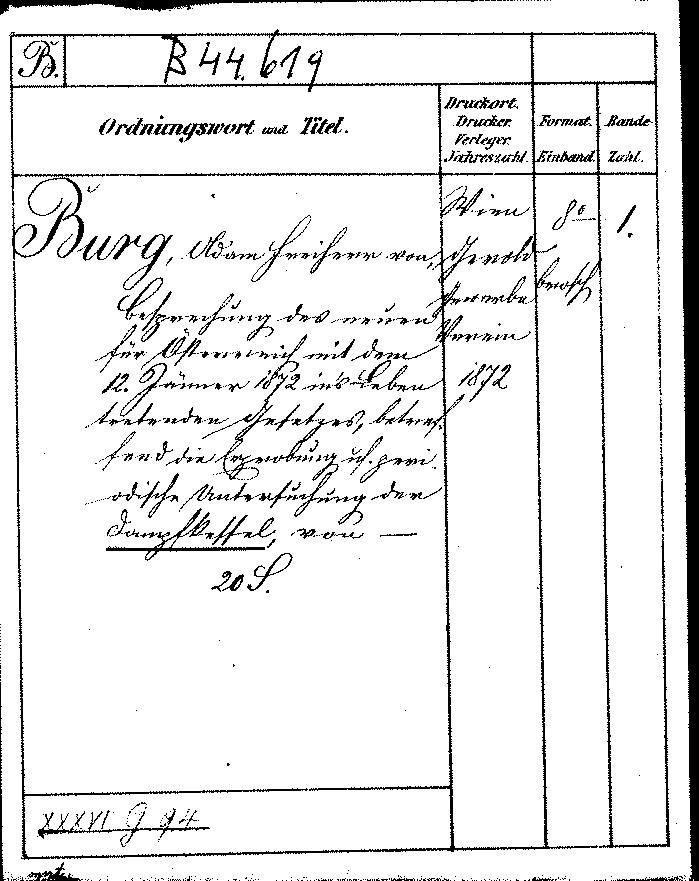 B. B 44.619
Ordnungswort und Titel.
Druckort.
Drucker.
Verleger.
Jahreszahl.
Format.
Einband.
Bände
Zahl.
Burg, Adam Freiherr von,
Besprechung des neuen
für Österreich mit dem
12. Jänner 1872 in's Leben
tretenden Gesetzes, betref-
fend die Erprobung u. peri-
odische Untersuchung der
Dampfkessel, von —
20 S.
Wien
Gerold
Gewerbe
Verein
1872
8°
brosch
1.
XXXVI G 94